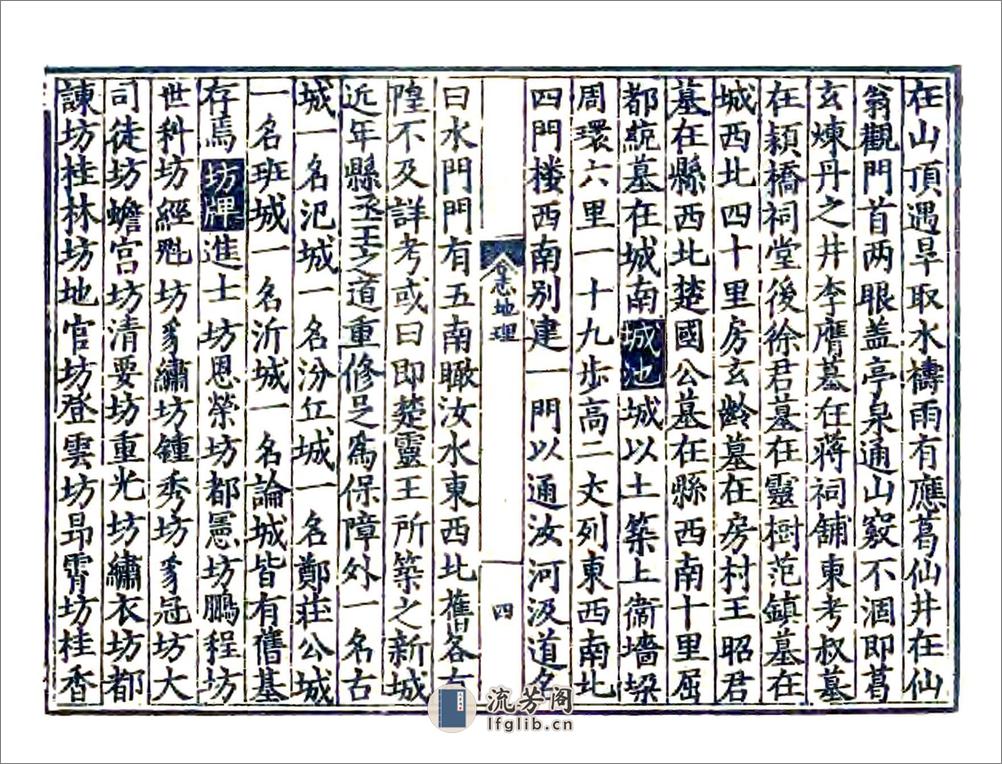 在山頂遇旱取水禱雨有應葛仙井在仙
翁觀門首两眼盖亭泉通山竅不涸即葛
玄煉丹之井李膺墓在蔣祠舖東考叔墓
在潁橋祠堂後徐君墓在靈樹范鎮墓在
城西北四十里房玄齡墓在房村王昭君
墓在縣西北楚國公墓在縣西南十里屈
都統墓在城南城池城以土築上衞墻垜
周環六里一十九步高二丈列東西南北
四門楼西南别建一門以通汝河汲道名
志地理
四
曰水門門有五南瞰汝水東西北舊各有
隍不及詳考或曰即楚靈王所築之新城
近年縣丞王之道重修足爲保障外一名古
城一名氾城一名汾丘城一名鄭莊公城
一名班城一名沂城一名論城皆有舊基
存焉坊牌進士坊恩榮坊都憲坊鵬程坊
世科坊經魁坊豸繡坊鍾秀坊豸冠坊大
司徒坊蟾宫坊清要坊重光坊繡衣坊都
諫坊桂林坊地官坊登雲坊昂霄坊桂香
流芳阁
lfglib.cn